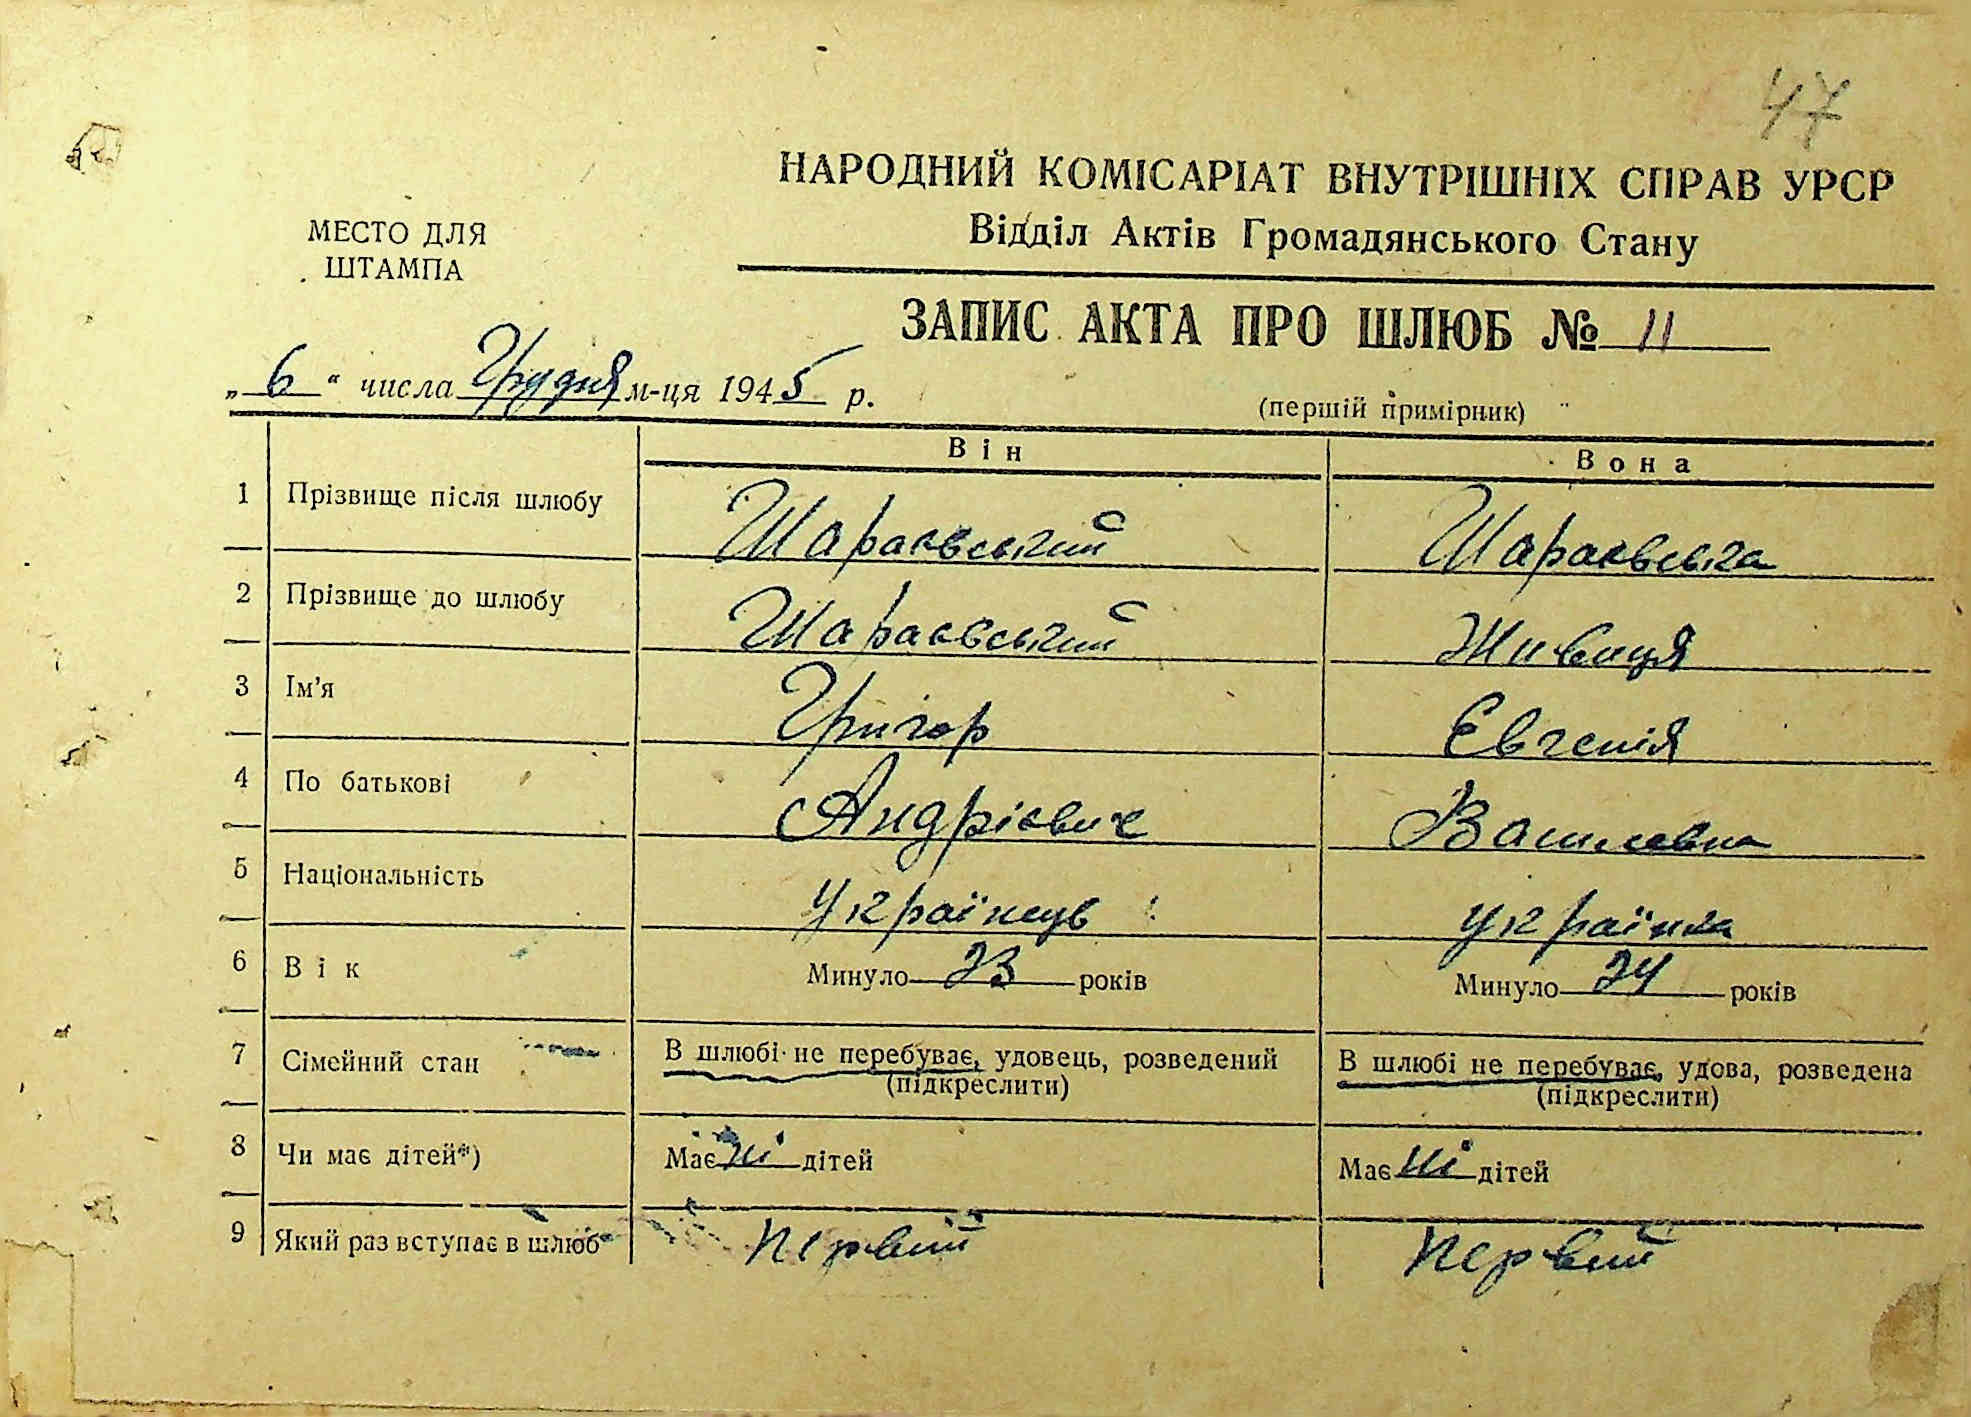 47
НАРОДНИЙ КОМІСАРІАТ ВНУТРІШНІХ СПРАВ УРСР
Відділ Актів Громадянського Стану
МЕСТО ДЛЯ
ШТАМПА
ЗАПИС АКТА ПРО ШЛЮБ № 11
„6“ числа Грудня м-ця 1945 р.
(першій примірник)
Він Вона
1 Прізвище після шлюбу Шараєвський Шараєвська
2 Прізвище до шлюбу Шараєвський Живиця
3 Ім'я Григор Євгенія
4 По батькові Андрієвич Василевна
5 Національність Українець Українка
6 Вік Минуло 23 років Минуло 24 років
7 Сімейний стан В шлюбі не перебуває, удовець, розведений В шлюбі не перебуває, удова, розведена
(підкреслити) (підкреслити)
8 Чи має дітей*) Має ні дітей Має ні дітей
9 Який раз вступає в шлюб первий первий